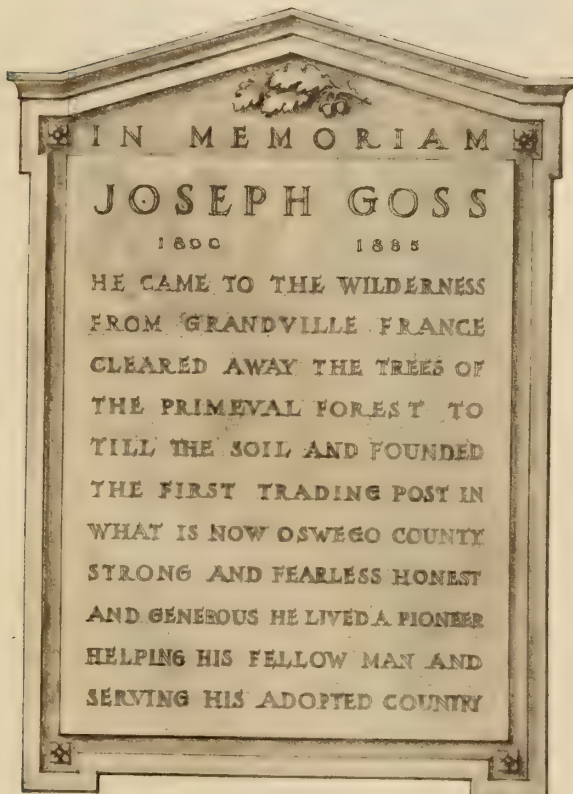 IN MEMORIAM
JOSEPH GOSS
1800 1885
HE CAME TO THE WILDERNESS
FROM GRANDVILLE FRANCE
CLEARED AWAY THE TREES OF
THE PRIMEVAL FOREST TO
TILL THE SOIL AND FOUNDED
THE FIRST TRADING POST IN
WHAT IS NOW OSWEGO COUNTY
STRONG AND FEARLESS HONEST
AND GENEROUS HE LIVED A PIONEER
HELPING HIS FELLOW MAN AND
SERVING HIS ADOPTED COUNTRY